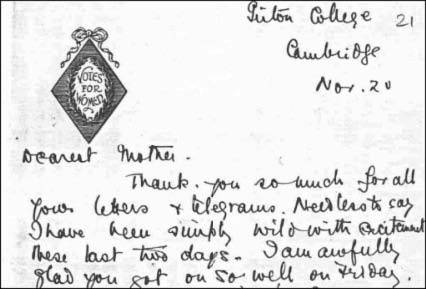 Girton College 21
Cambridge
Nov. 20
VOTES
FOR
WOMEN
Dearest Mother.
Thank you so much for all
your letters & telegrams. Needless to say
I have been simply wild with excitement
these last two days. I am awfully
glad you got on so well on Friday.